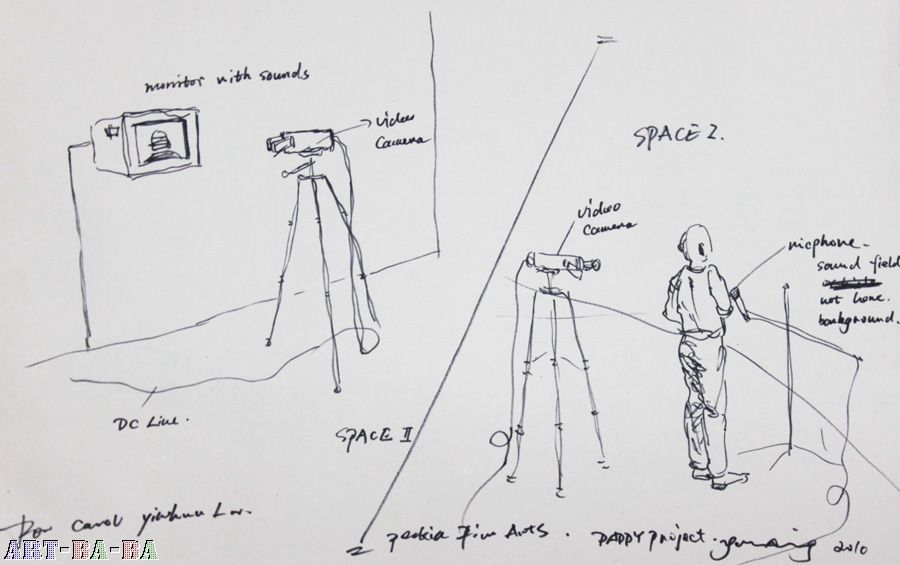 monitor with sounds
video
camera
SPACE 2.
video
camera
micphone -
sound field
background.
DC Line.
SPACE II
For Carol
Fine Arts .
DADDY project.
2010
ART-BA-BA